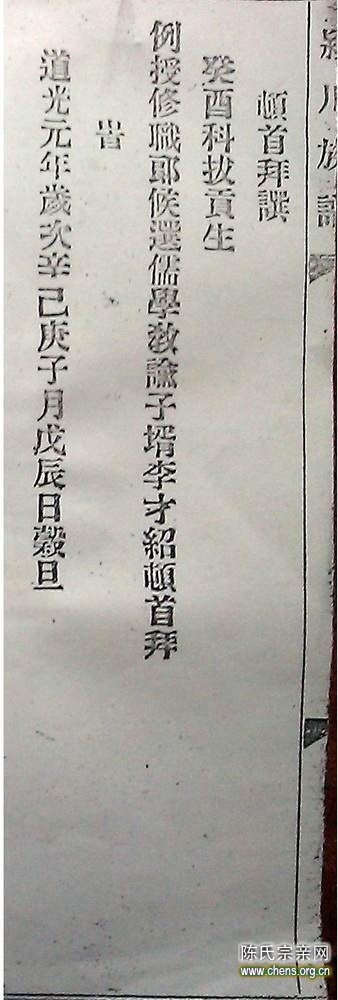 川族譜
頓首拜譔
癸酉科拔貢生
例授修職郎候選儒學教諭子壻李才紹頓首拜
峕
道光元年歲次辛己庚子月戊辰日榖旦
陈氏宗亲网
www.chens.org.cn